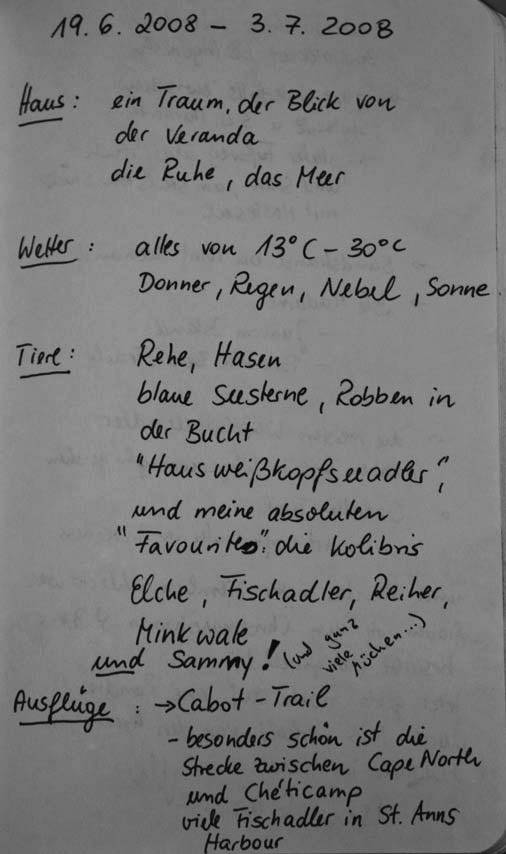 19.6.2008 - 3.7.2008
Haus: ein Traum, der Blick von
der Veranda
die Ruhe, das Meer
Wetter: alles von 13°C - 30°C
Donner, Regen, Nebel, Sonne
Tiere: Rehe, Hasen
blaue Seesterne, Robben in
der Bucht
"Hausweißkopfseeadler",
und meine absoluten
"Favourites": die Kolibris
Elche, Fischadler, Reiher,
Minkwale
und Sammy! (und ganz
viele Mücken...)
Ausflüge: → Cabot-Trail
- besonders schön ist die
Strecke zwischen Cape North
und Chéticamp
viele Fischadler in St. Anns
Harbour